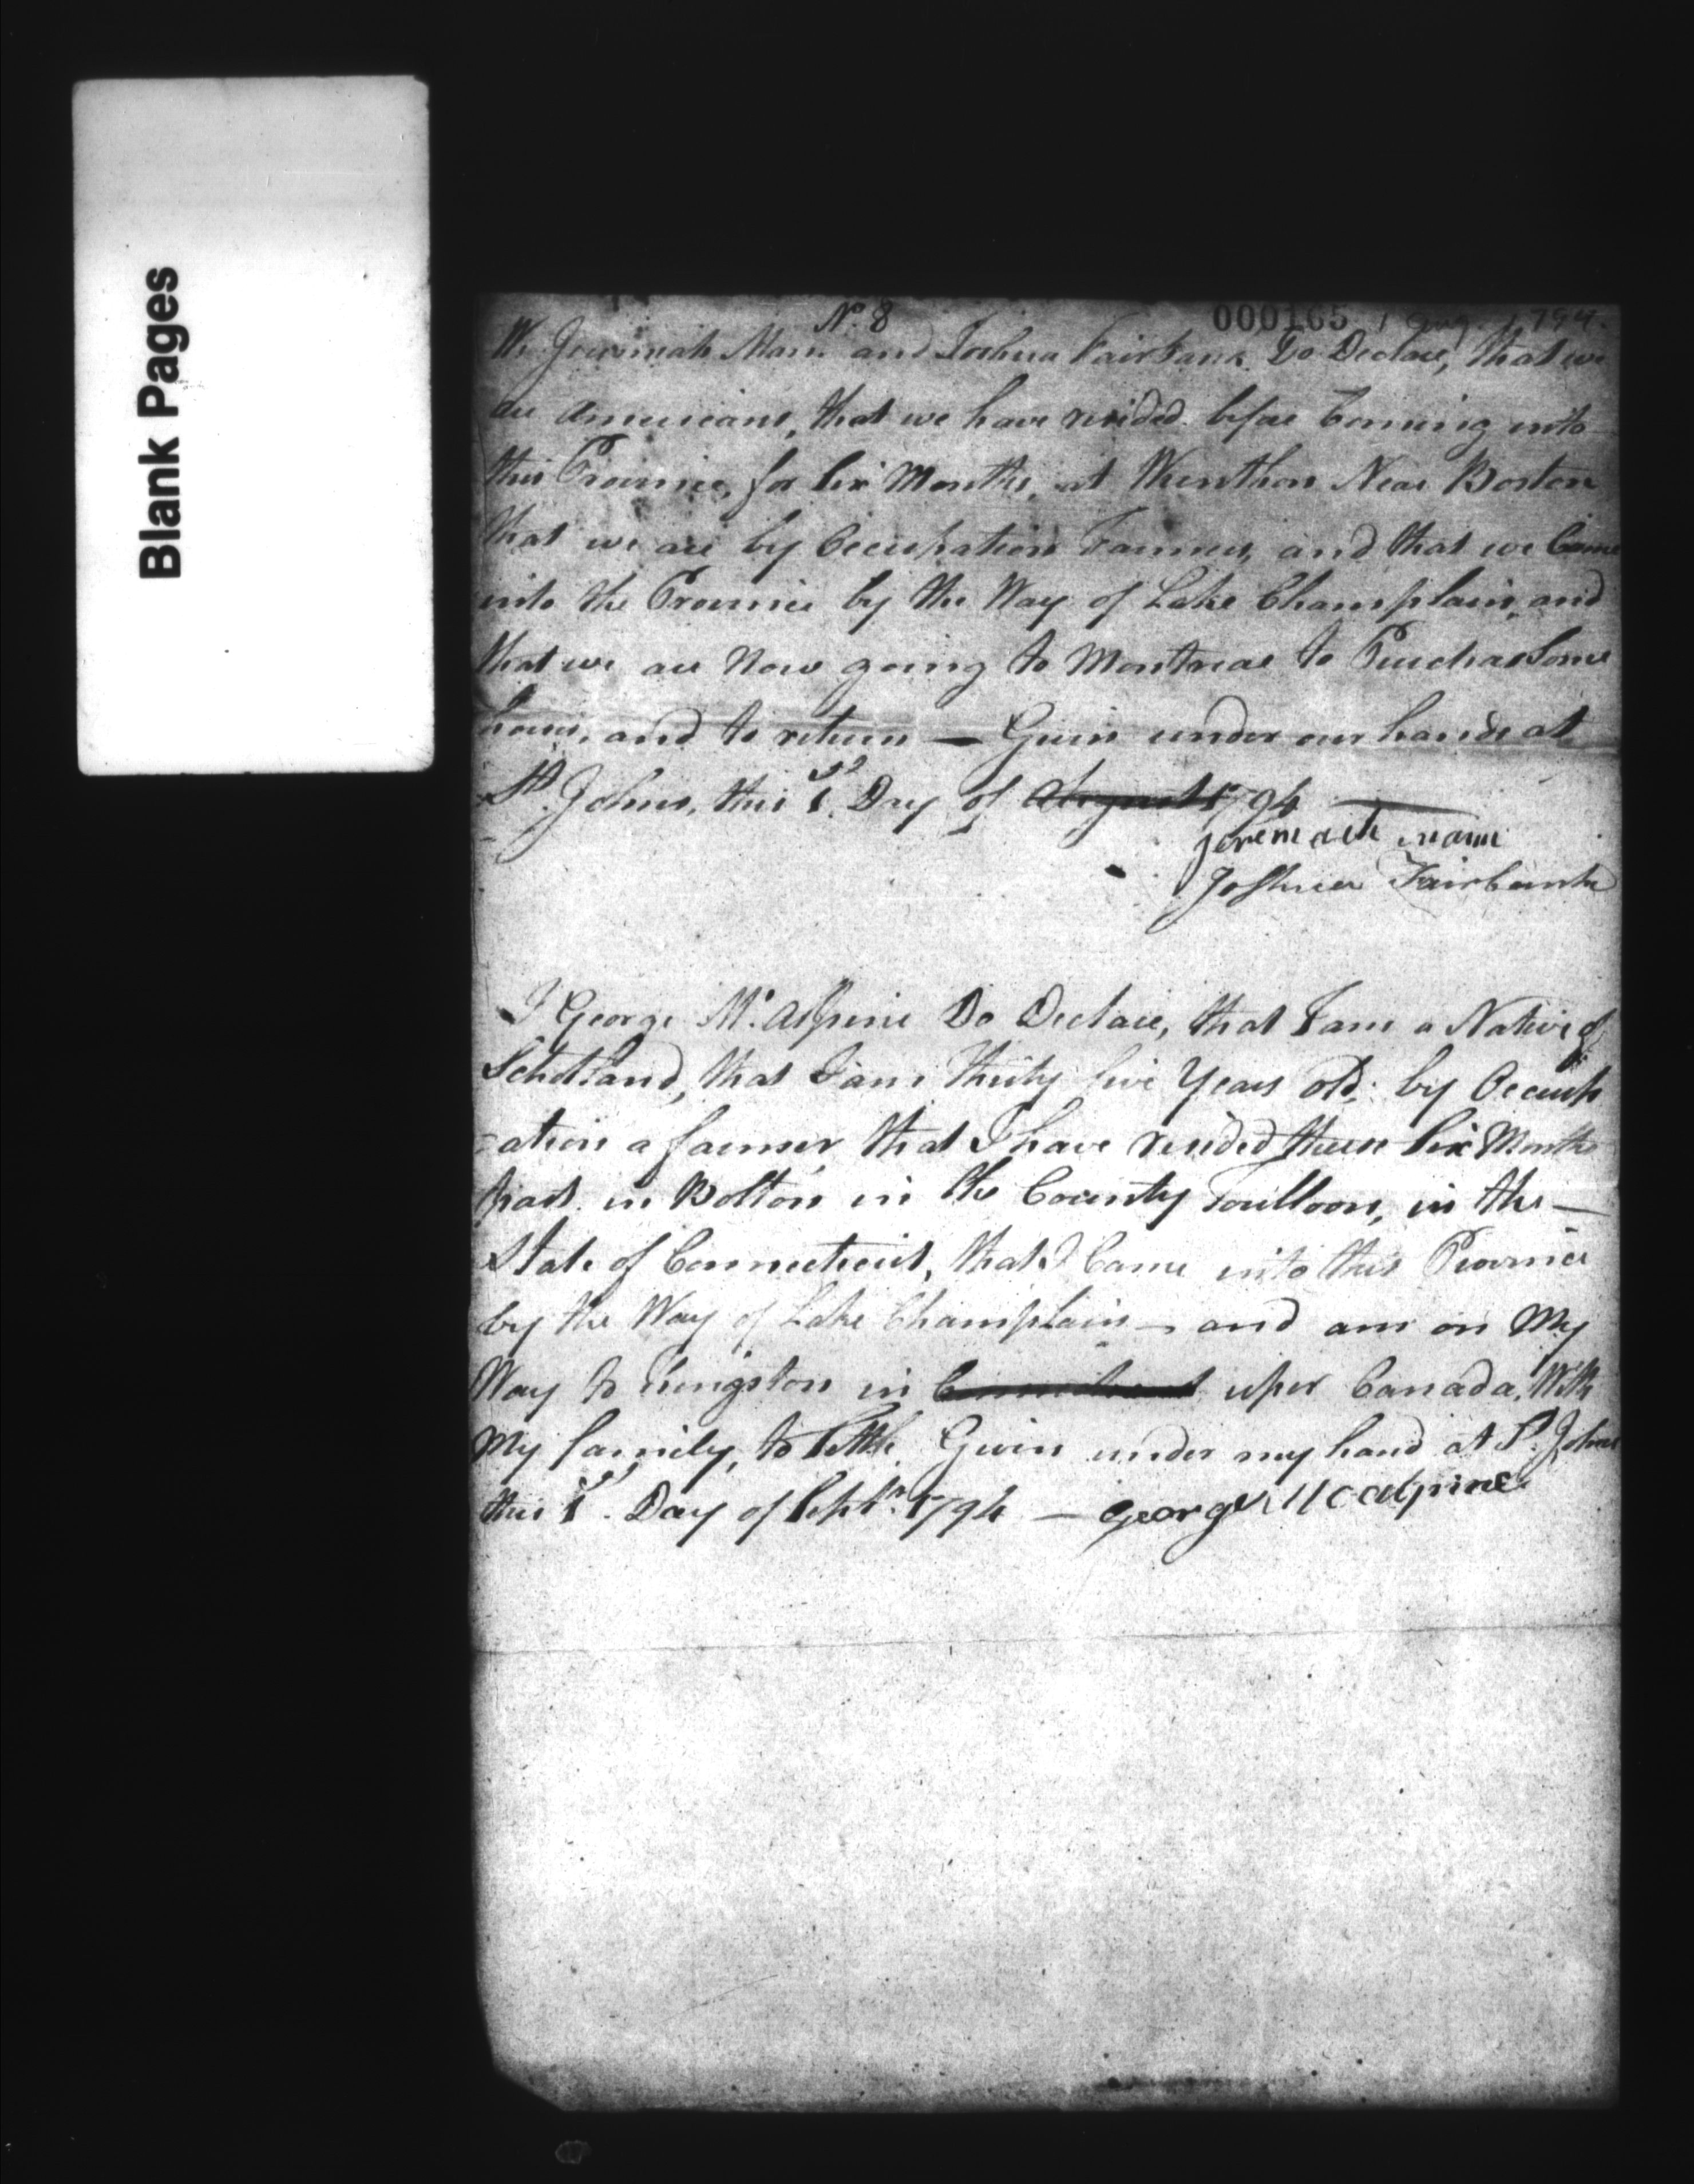 Blank Pages
No. 8
000165 1 Aug. 1794.
We Jeremiah Mann and Joshua Fairbank Do Declare, that we
are Americans, that we have resided before Comming into
this Province, for Six Months, at Wrenthon Near Boston
that we are by Occupation Farmers, and that we Came
into the Province by the Way of Lake Champlain, and
that we are Now going to Montreal to Purchas Some
horses, and to return — Givin under our hands at
St. Johns, this 1st Day of August 1794 —
Jeremiah Mann
Joshua Fairbanks
I George Mc. Alpine Do Declare, that I am a Native of
Schotland, that I am thirty five Years old; by Occup
=ation a farmer, that I have resided these Six Months
past in Bolton in the County Toulloon, in the —
State of Connecticut, that I Came into this Province
by the Way of Lake Champlain — and am on My
Way to Kingston in uper Canada, With
My family, to Settle Givin under my hand at St. Johns
this 1st. Day of Septr. 1794 — George McAlpine